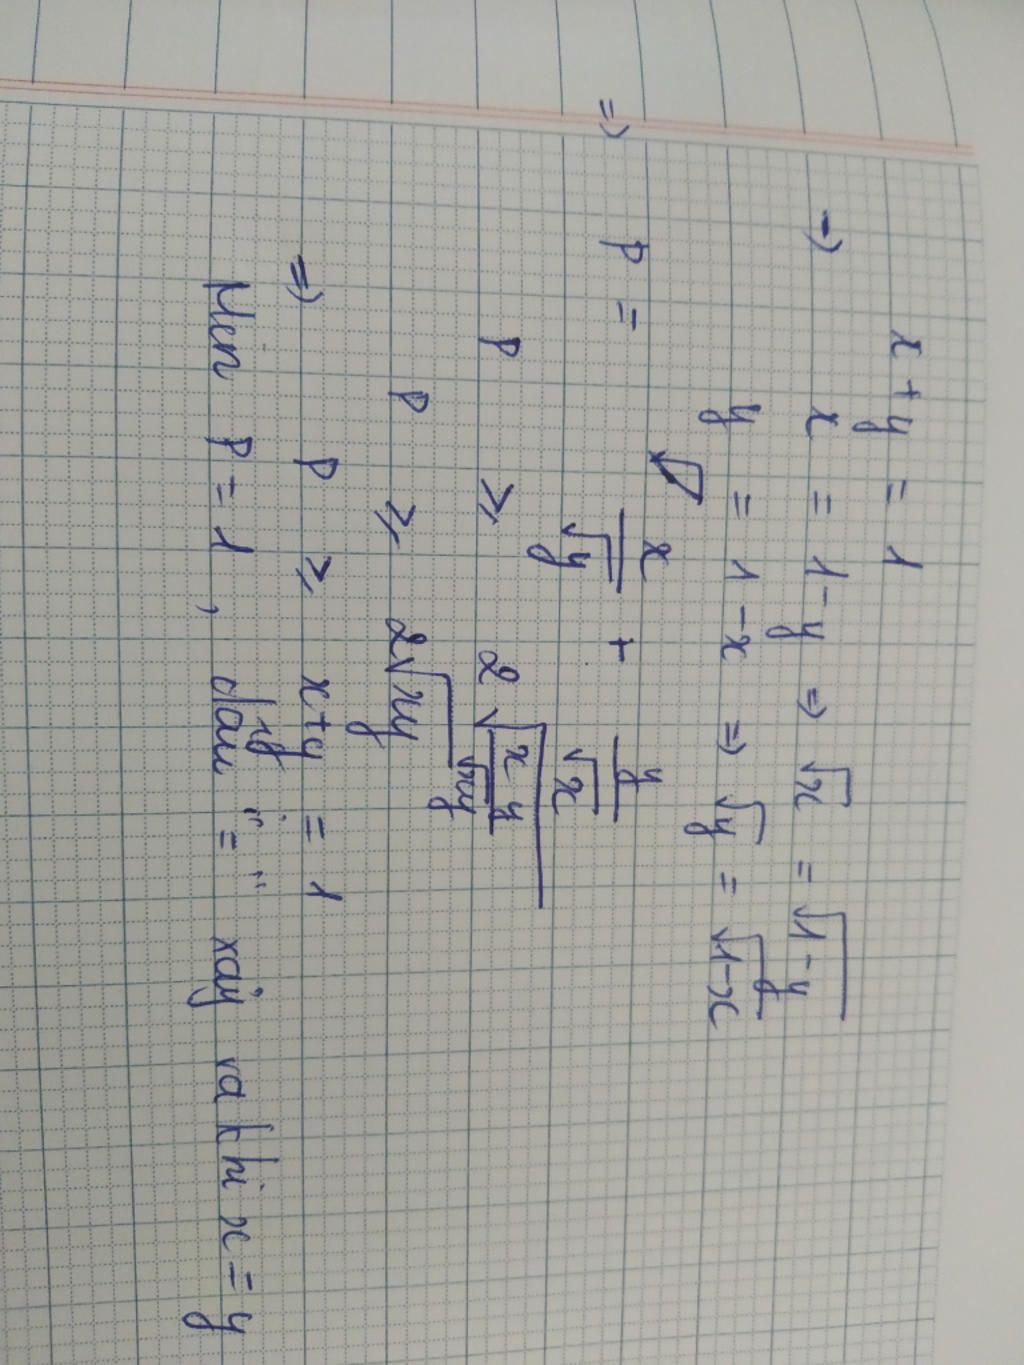 x + y = 1
=) x = 1 - y => √x = √1-y
y = 1 - x => √y = √1-x
=) P = x/√y + y/√x
P ≥ 2 √(xy/√xy)
P ≥ 2√xy
=) P ≥ x + y = 1
Min P = 1, dấu "=" xảy ra khi x = y